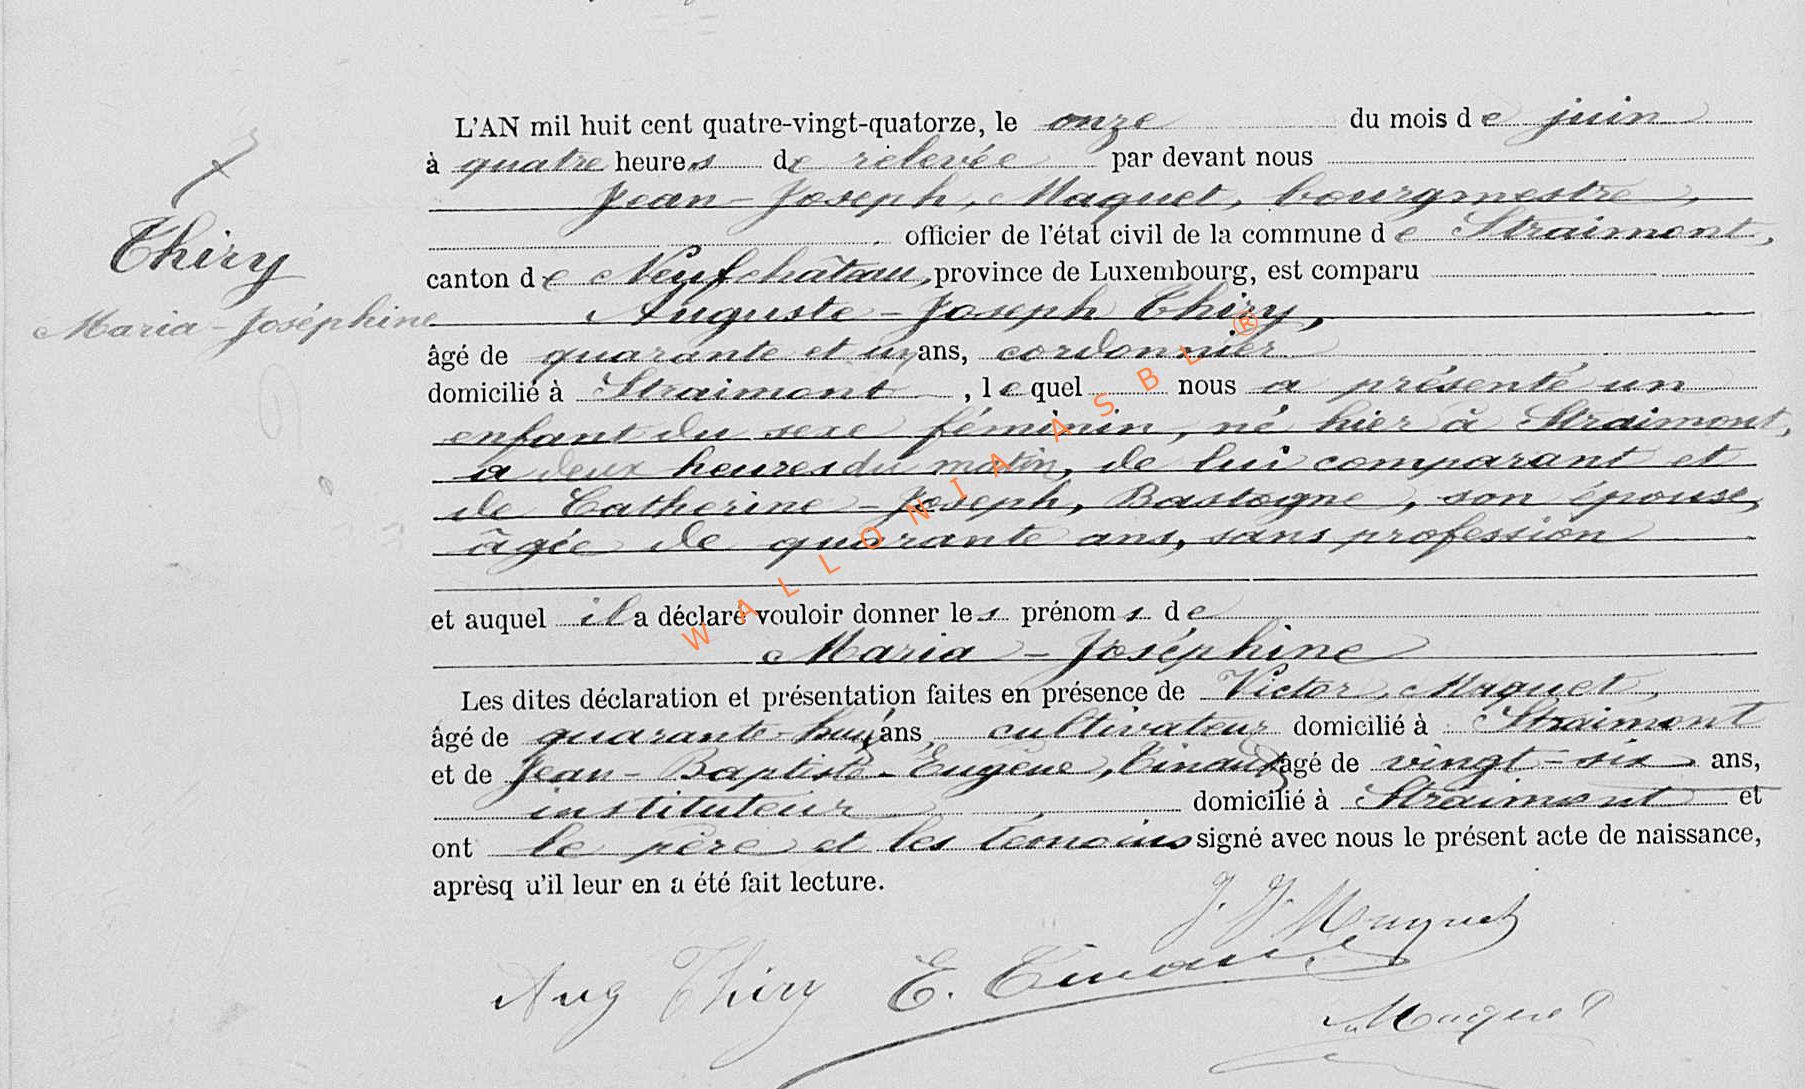 L'AN mil huit cent quatre-vingt-quatorze, le onze du mois de juin
à quatre heures de relevée par devant nous
Jean-Joseph, Maquet, bourgmestre,
officier de l'état civil de la commune de Straimont,
Thiry
canton de Neufchâteau, province de Luxembourg, est comparu
Maria-Joséphine
Auguste-Joseph Thiry,
âgé de quarante et un ans, cordonnier
domicilié à Straimont, lequel nous a présenté un
enfant du sexe féminin, né hier à Straimont,
a deux heures du matin, de lui comparant et
de Catherine-Joseph, Bastogne, son épouse,
âgée de quarante ans, sans profession
et auquel il a déclaré vouloir donner les prénoms de
Maria-Joséphine
Les dites déclaration et présentation faites en présence de Victor, Maquet,
âgé de quarante-huit ans, cultivateur domicilié à Straimont
et de Jean-Baptiste-Eugène, Tinant âgé de vingt-six ans,
instituteur domicilié à Straimont et
ont le père et les témoins signé avec nous le présent acte de naissance,
aprèsq u'il leur en a été fait lecture.
J. J. Maquet
Aug Thiry E. Tinant
Maquet
WALLONIA ASBL ®